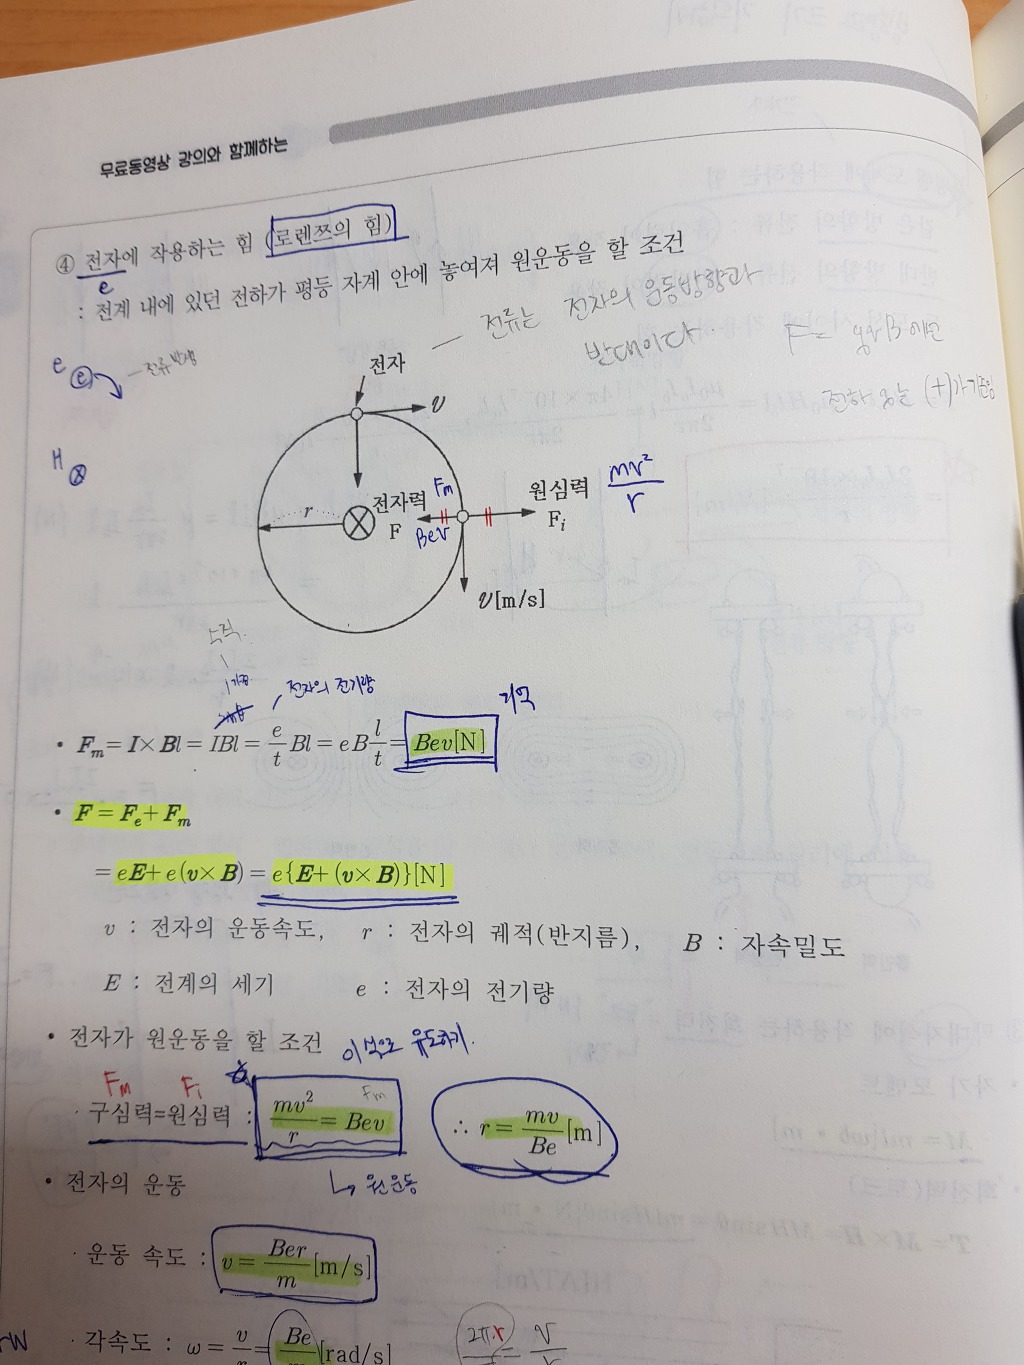 무료동영상 강의와 함께하는
④ 전자에 작용하는 힘 (로렌쯔의 힘)
e
: 전계 내에 있던 전하가 평등 자계 안에 놓여져 원운동을 할 조건
전류는 전자의 운동방향과
반대이다
F = qvB에선
전하 q는 (+)가 기준임
e ⓔ
전류방향
H ⊗
전자
v
r
전자력
F
Fm
Bev
원심력
Fi
mv²/r
v[m/s]
전자의 전기량
기억
• Fm = I × Bl = IBl = e/t Bl = eB l/t = Bev[N]
• F = Fe + Fm
= eE + e(v × B) = e{E + (v × B)}[N]
v : 전자의 운동속도, r : 전자의 궤적(반지름), B : 자속밀도
E : 전계의 세기 e : 전자의 전기량
• 전자가 원운동을 할 조건 이 식으로 유도하기.
Fm Fi
· 구심력=원심력 : mv²/r = Bev ∴ r = mv/Be [m]
Fm
• 전자의 운동
↳ 원운동
· 운동 속도 : v = Ber/m [m/s]
· 각속도 : ω = v/r = Be/m [rad/s]
rw
2πr
v